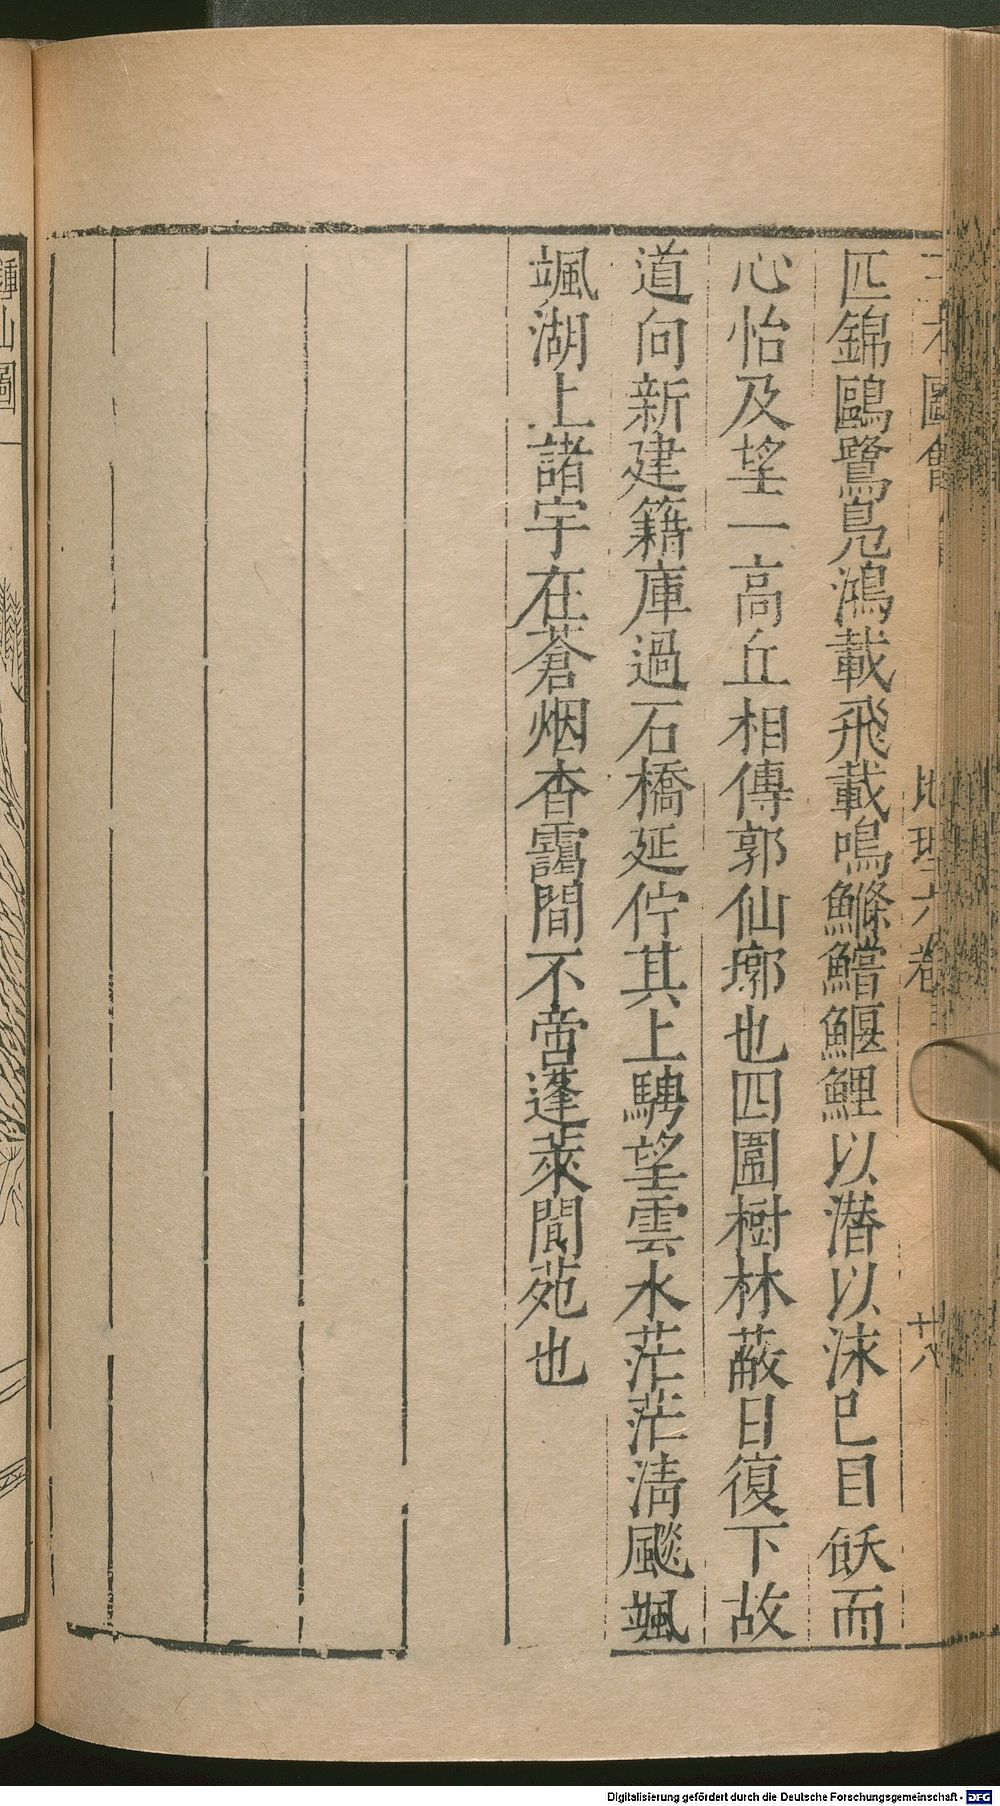 三才圖會
地理六卷
廿八
匹錦鷗鷺鳧鴻載飛載鳴鰷鱨鰋鯉以潜以沫已目飫而
心怡及望一高丘相傳郭仙墎也四圍樹林蔽日復下故
道向新建籍庫過石橋延佇其上騁望雲水茫茫淸颷颯
颯湖上諸宇在蒼烟杳靄間不啻蓬萊閬苑也
鍾山圖
Digitalisierung gefördert durch die Deutsche Forschungsgemeinschaft - DFG